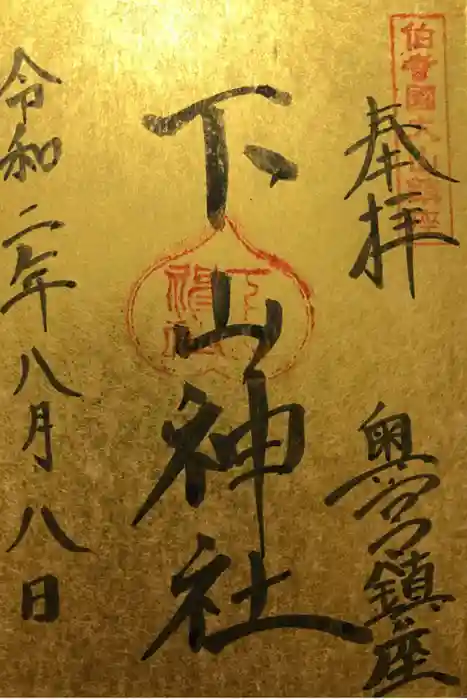 奉拝
伯耆國大山鎮座
奥宮鎮座
下山神社
令和二年八月八日